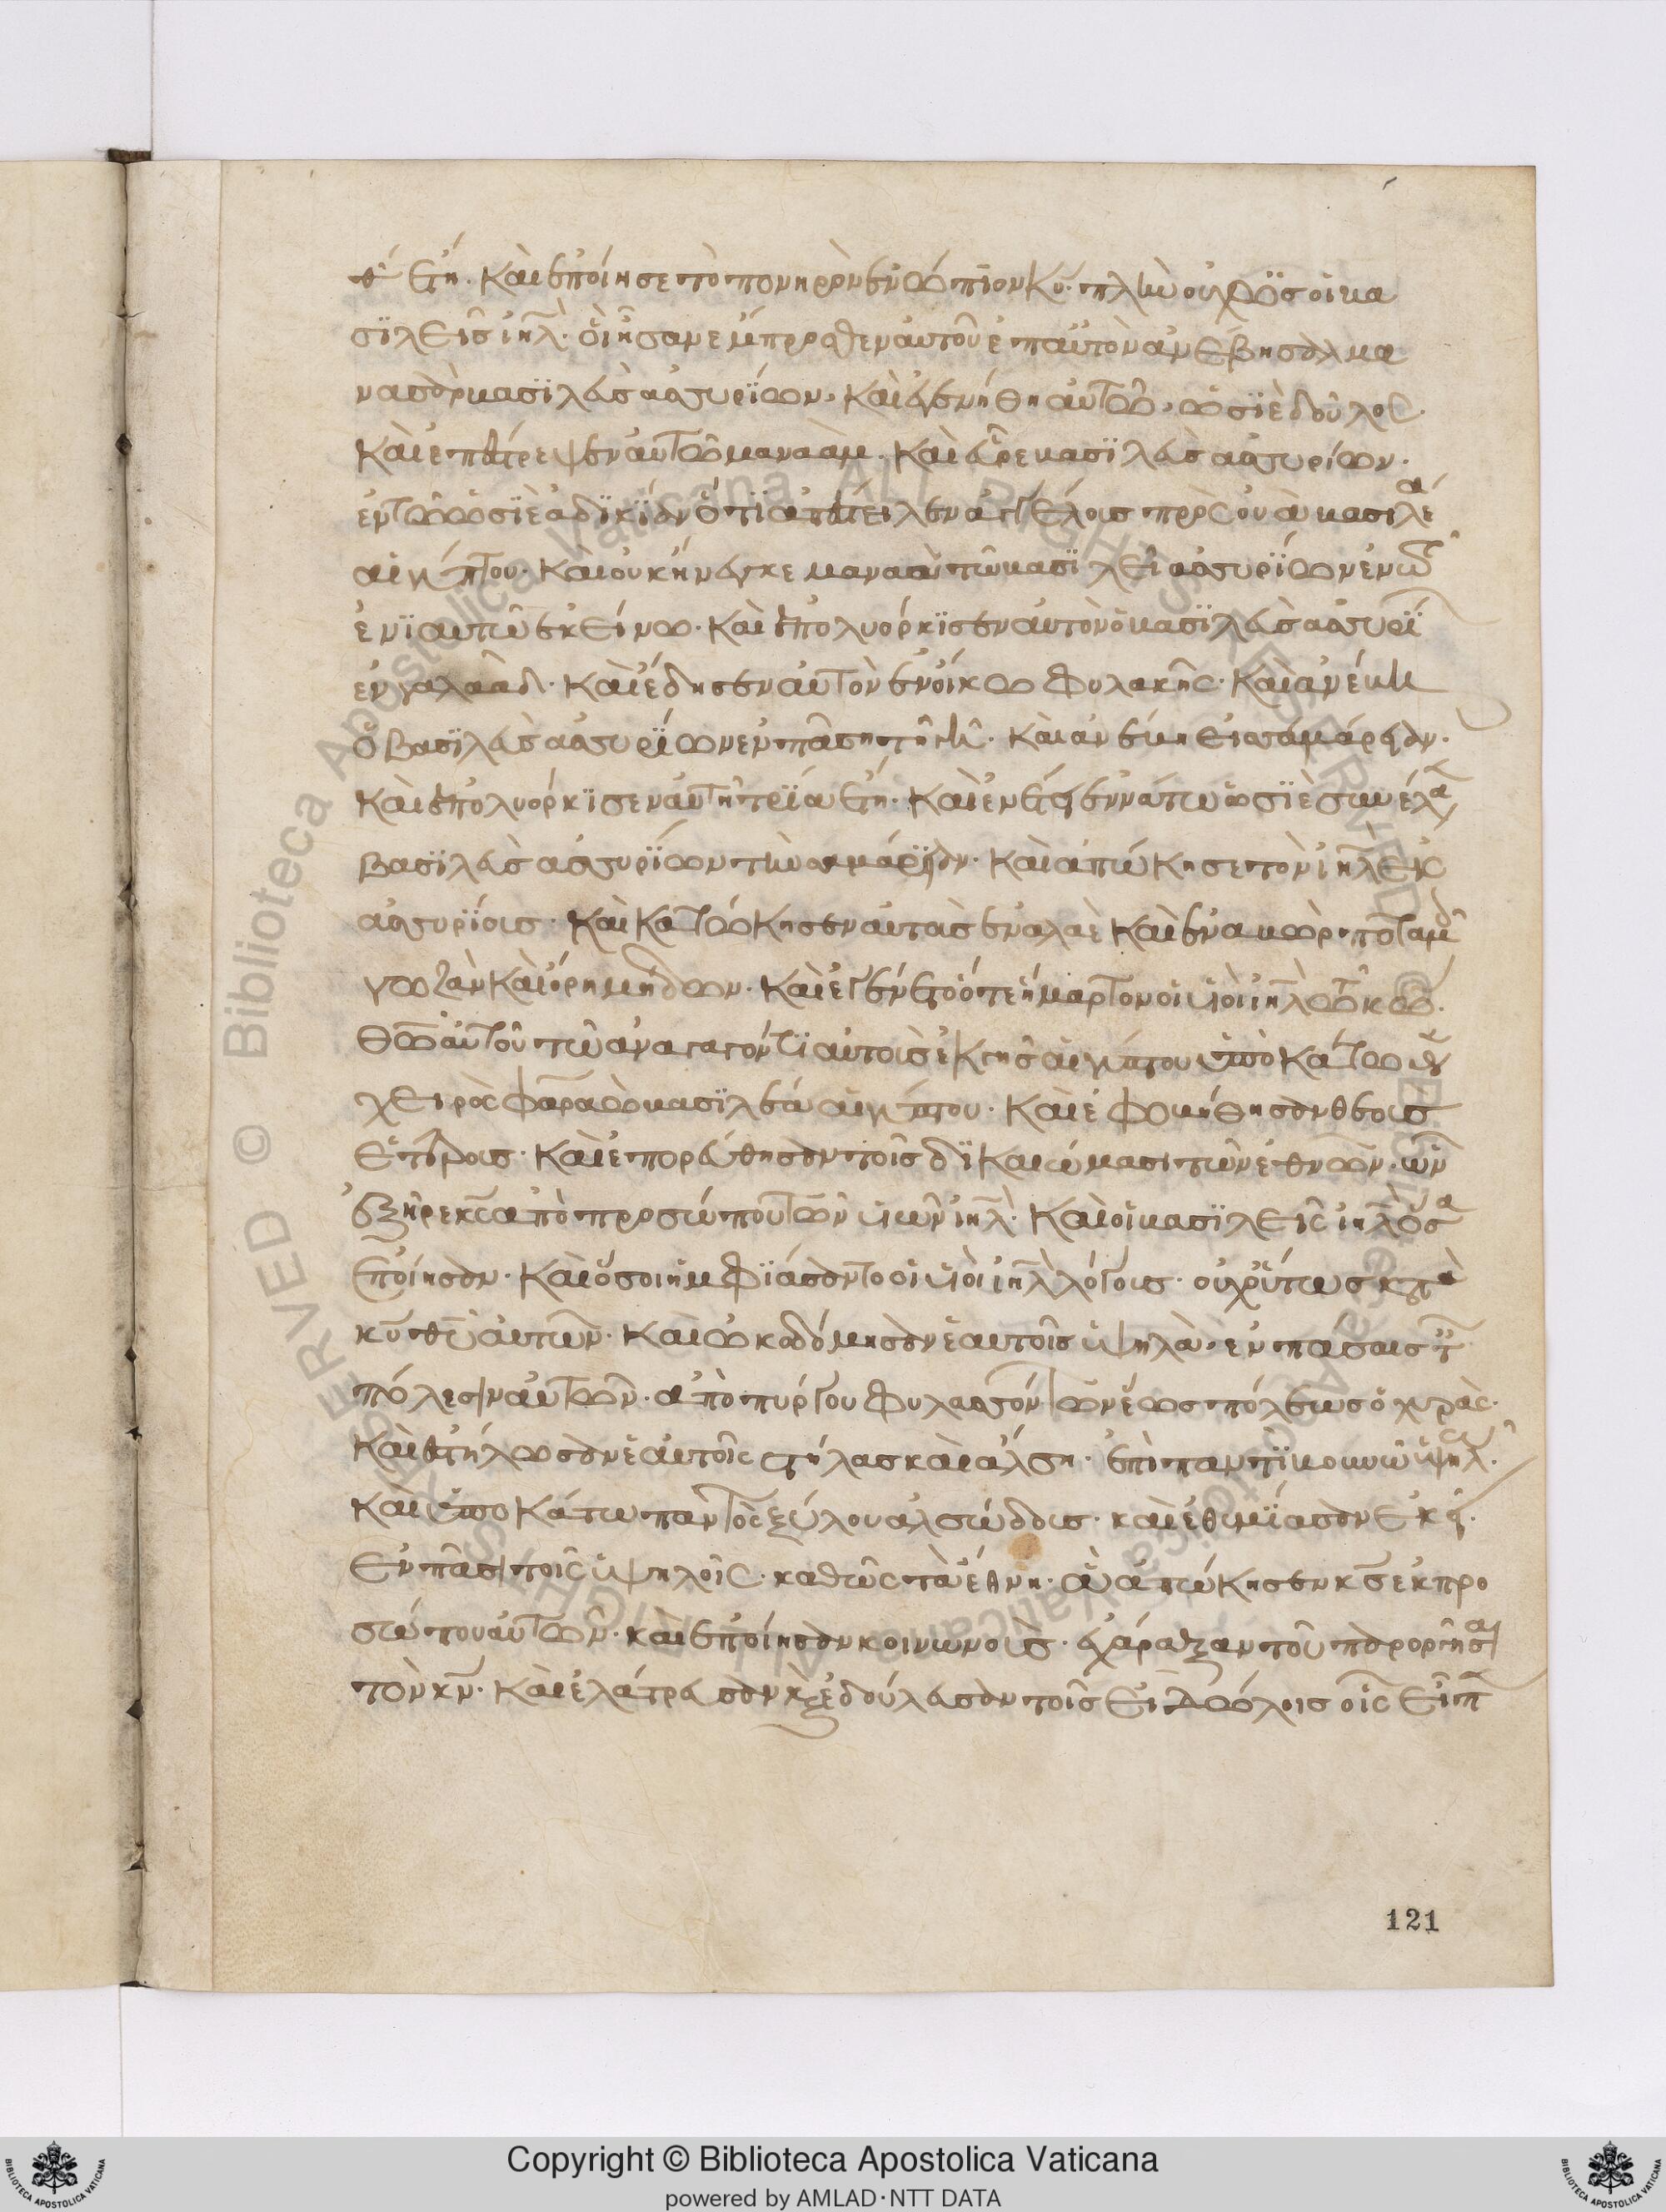 θ´ ἔτη. καὶ ἐποίησε τὸ πονηρὸν ἐνώπιον κυ. πλὴν οὐχ ὡς οἱ βα
σϊλεῖς ιηλ. οἳ ἦσαν ἔμπροσθεν αὐτοῦ ἐπ αὐτὸν ἀνέβη σαλμα
νασὰρ βασϊλεὺς ἀσσυρΐων. καὶ ἐγενήθη αὐτῶ. ὠσϊὲ δοῦλος.
καὶ ἐπέστρεψεν αὐτῶ μαναὰμ. καὶ εὗρε βασϊλεὺς ἀσσυρίων.
ἐν τῶ ὠσϊὲ ἀδϊκΐαν ὅτϊ ἀπέστειλεν ἀγγέλους πρὸς σουὰ βασιλέα
αἰγύπτου. καὶ οὐκ ἤνεγκε μαναὰ τῶ βασϊλεῖ ἀσσυρΐων ἐν τῶ
ἐνϊαυτῶ ἐκείνω. καὶ ἐπολυόρκϊσεν αὐτὸν ὁ βασϊλεὺς ἀσσυρΐ
ἐν γαλαὰδ. καὶ ἔδησεν αὐτὸν ἐν οἴκω φυλακῆς. καὶ ἀνέβη
ὁ βασϊλεὺς ἀσσυρΐων ἐν πάση τῆ γῆ. καὶ ἀνέβη εἰς σαμάρειαν.
καὶ ἐπολυόρκϊσεν αὐτὴ τρΐα ἔτη. καὶ ἐν ἔτει ἐννάτω ὠσϊὲ συνέλα
βασϊλεὺς ἀσσυρΐων τὴν σαμάρειαν. καὶ ἀπώκησε τὸν ιηλ εἰς
ἀσσυρΐους. καὶ κατώκησεν αὐτοὺς ἐν αλαὲ καὶ ἐν αβὼρ ποταμ
γωζὰν καὶ ὄρη μήδων. καὶ ἐγένετο ὅτε ἥμαρτον οἱ υἱοὶ ιηλ τῶ κω.
θω αὐτοῦ τῶ ἀναγαγόντϊ αὐτοὺς ἐκ γῆς αἰγύπτου ὑποκάτω ἐκ
χειρὸς φαραὼ βασϊλέως αἰγύπτου. καὶ ἐφοβήθησαν θεοὺς
ἑτέρους. καὶ ἐπορεύθησαν τοῖς δϊκαιώμασι τῶν ἐθνῶν. ὧν
ἐξῆρε κς ἀπὸ προσώπου τῶν υἱῶν ιηλ. καὶ οἱ βασϊλεῖς ιηλ ὅσα
ἐποίησαν. καὶ ὅσοι ἠμφϊάσαντο οἱ υἱοὶ ιηλ λόγους. οὐχ οὕτως κατὰ
κυ θυ αὐτῶν. καὶ ὠκοδόμησαν ἑαυτοῖς ὑψηλὰ. ἐν πάσαις τ
πόλεσιν αὐτῶν. ἀπὸ πύργου φυλασσόντων ἕως πόλεως ὀχυρὰς.
καὶ ἐστήλωσαν ἑαυτοῖς στήλας καὶ ἄλση. ἐπὶ παντϊ βουνῶ ὑψηλ.
καὶ ὑποκάτω παντὸς ξύλου ἀλσώδους. καὶ ἐθυμΐασαν ἐκεῖ.
ἐν πᾶσι τοῖς ὑψηλοῖς. καθὼς τὰ ἔθνη. ἃ ἀπώκησεν κς ἐκ προ
σώπου αὐτῶν. καὶ ἐποίησαν κοινωνοὺς. ἐχάραξαν τοῦ παροργῆσαι
τὸν κν. καὶ ἐλάτρευσαν κ ἐδούλευσαν τοῖς εἰδώλοις οἷς εἶπ
121
Copyright © Biblioteca Apostolica Vaticana
powered by AMLAD·NTT DATA